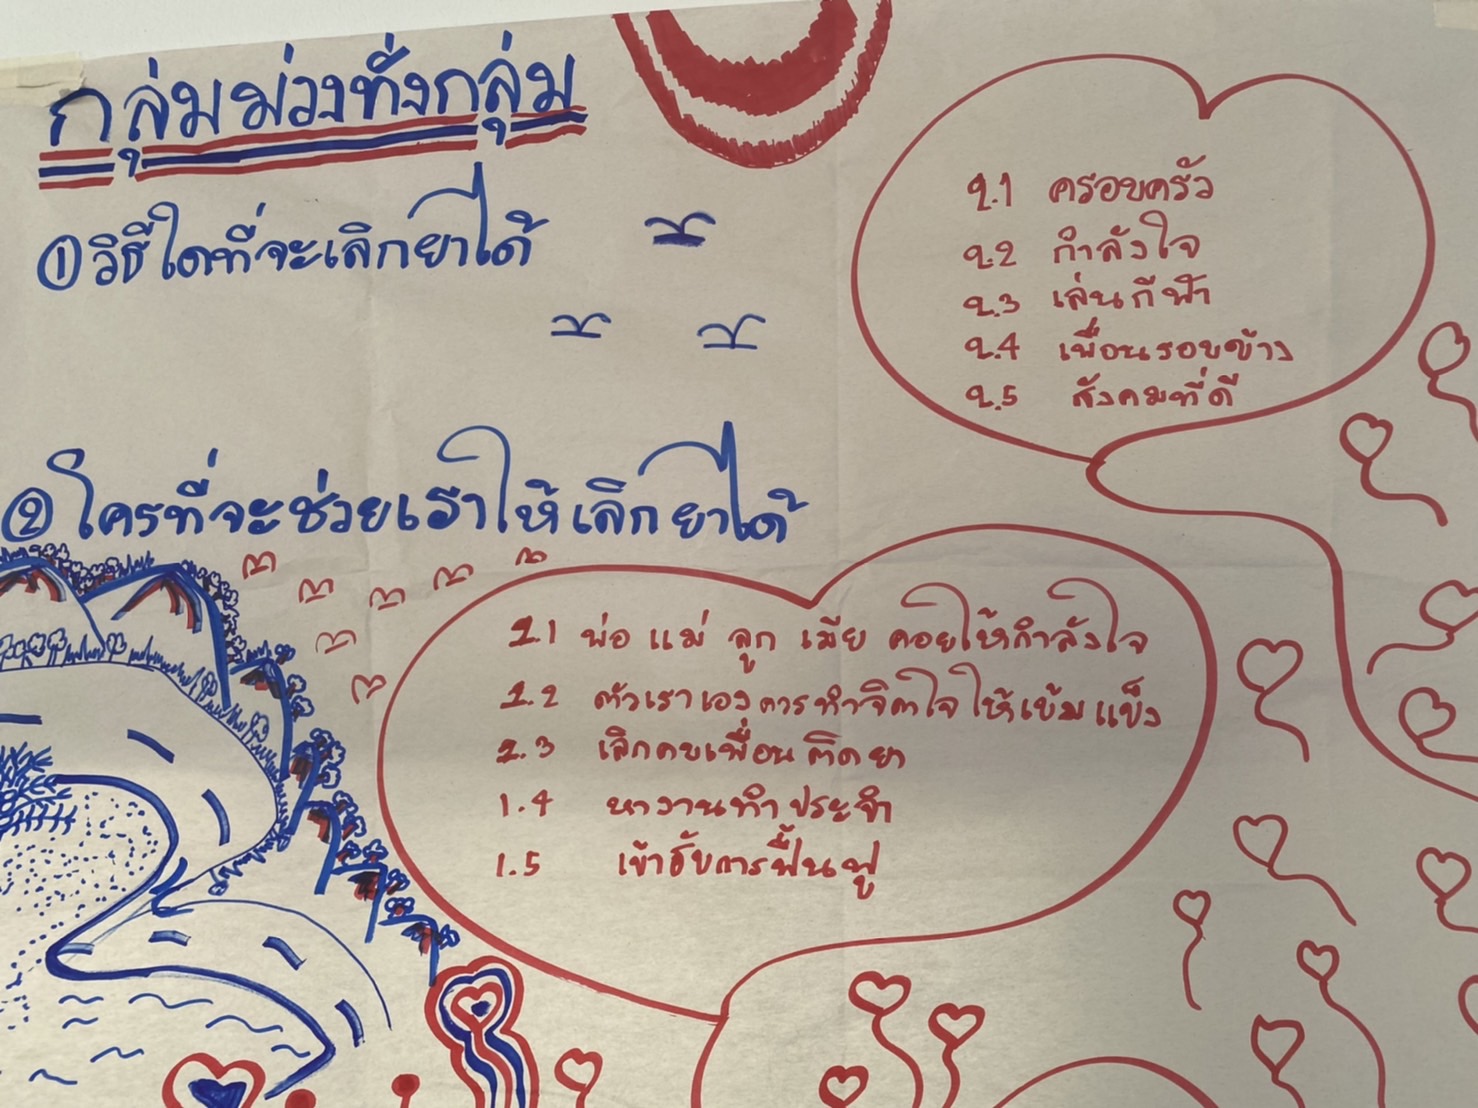 กลุ่มม่วงทั้งกลุ่ม
① วิธีใดที่จะเลิกยาได้
2.1 ครอบครัว
2.2 กำลังใจ
2.3 เล่นกีฬา
2.4 เพื่อนรอบข้าง
2.5 สังคมที่ดี
② ใครที่จะช่วยเราให้เลิกยาได้
1.1 พ่อ แม่ ลูก เมีย คอยให้กำลังใจ
1.2 ตัวเราเองควรทำจิตใจให้เข้มแข็ง
1.3 เลิกคบเพื่อนติดยา
1.4 หางานทำประจำ
1.5 เข้ารับการฟื้นฟู